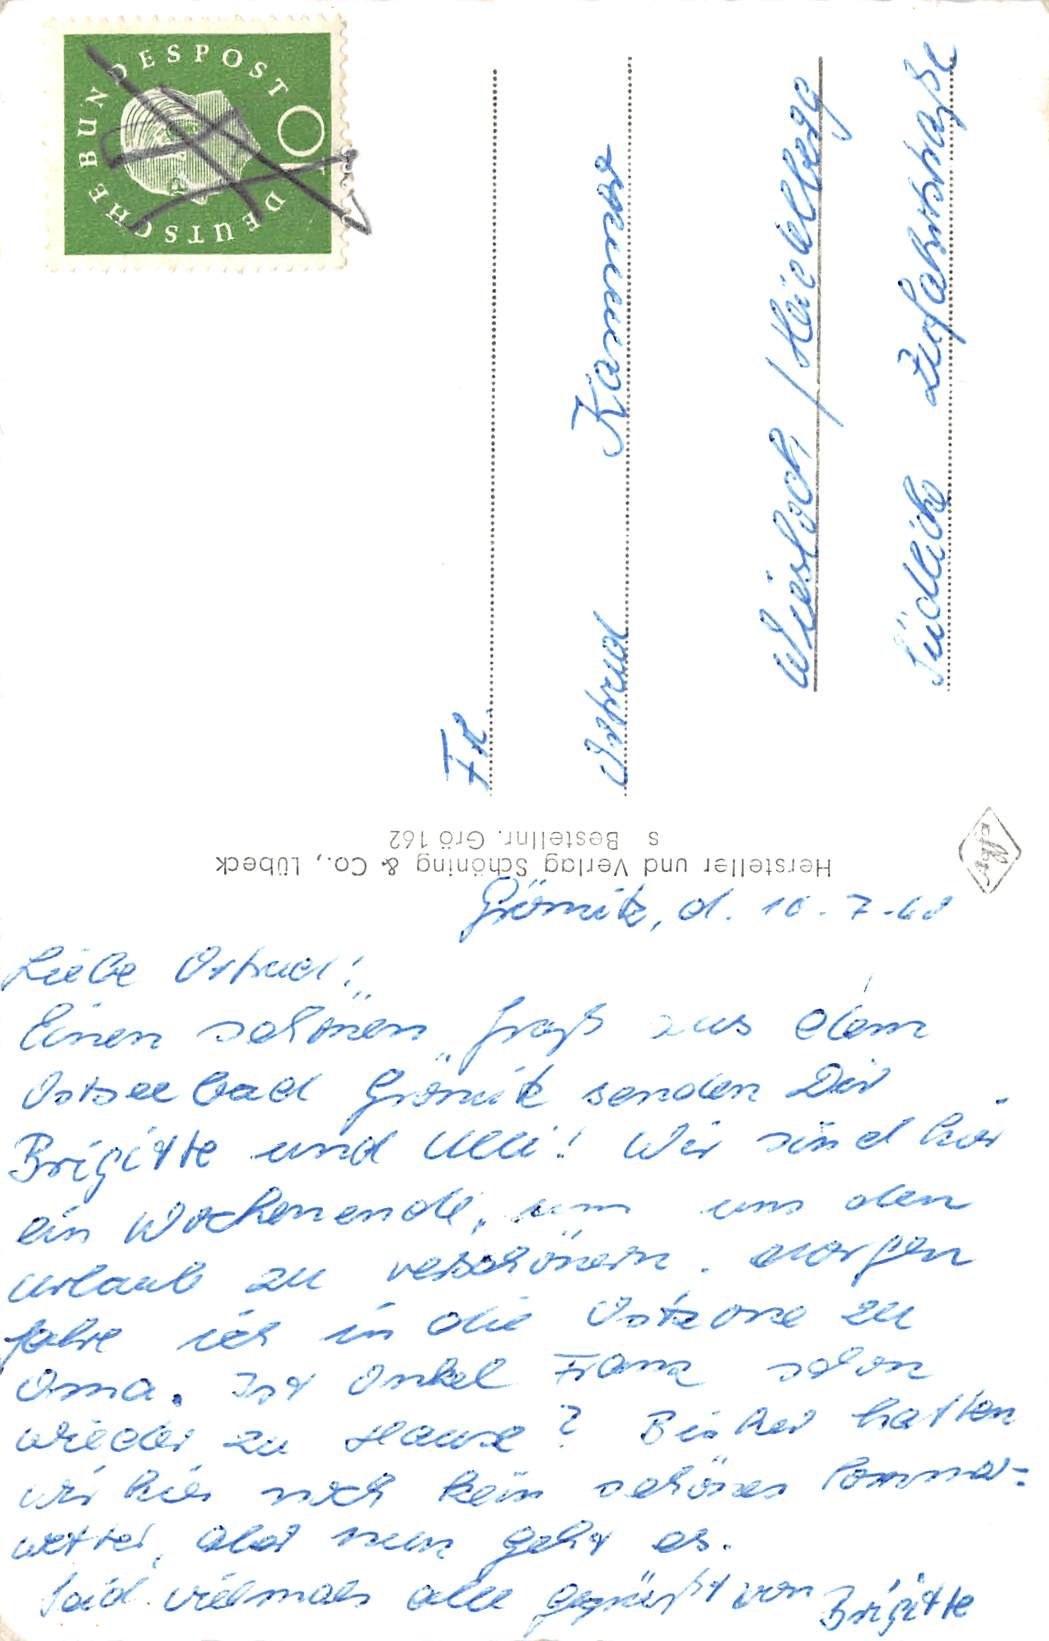 DEUTSCHE BUNDESPOST
10
Frl.
Ostrud Kammer
Wiesloch / Heidelberg
Südlich Zufahrtstraße
Hersteller und Verlag Schöning & Co., Lübeck
s Bestellnr. Grö 162
Agfa
Grömitz, d. 10.7.60
Liebe Ostrud!
Einen schönen Gruß aus dem
Ostseebad Grömitz senden Dir
Brigitte und Ulli! Wir sind hier
ein Wochenende, um uns den
Urlaub zu verschönern. Morgen
fahre ich in die Ostzone zu
Oma. Ist Onkel Franz schon
wieder zu Hause? Bisher hatten
wir hier noch kein schönes Sommer=
wetter, aber nun geht es.
Seid vielmals alle gegrüßt von Brigitte